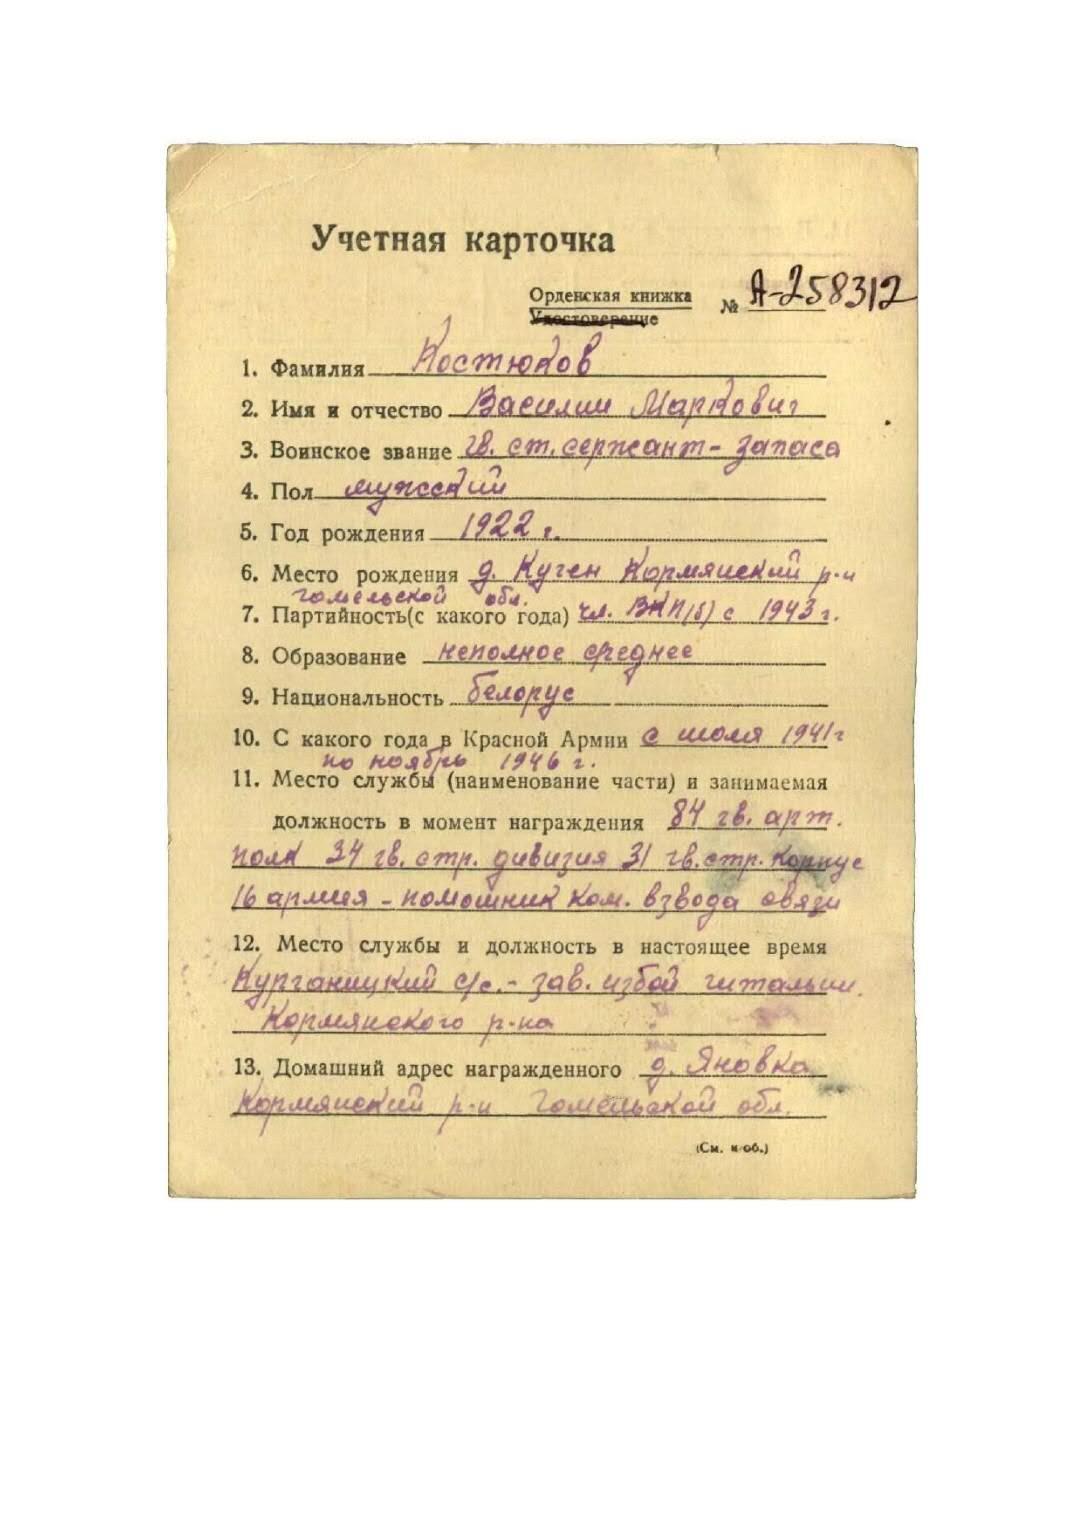 Учетная карточка
Орденская книжка
Удостоверение
№ А-258312
1. Фамилия Костюков
2. Имя и отчество Василии Маркович
3. Воинское звание гв. ст. сержант - запаса
4. Пол мужский
5. Год рождения 1922 г.
6. Место рождения д. Кучен Кормянский р-н
гомельской обл.
7. Партийность(с какого года) чл. ВКП(б) с 1943 г.
8. Образование неполное среднее
9. Национальность белорус
10. С какого года в Красной Армии с июля 1941 г
по ноябрь 1946 г.
11. Место службы (наименование части) и занимаемая
должность в момент награждения 84 гв. арт.
полк 34 гв. стр. дивизия 31 гв. стр. корпус
16 армия - помошник ком. взвода связи
12. Место службы и должность в настоящее время
Курганицкий с/с. - зав. избой читальни.
Кормянского р-на
13. Домашний адрес награжденного д. Яновка
Кормянский р-н Гомельской обл.
(См. н об.)